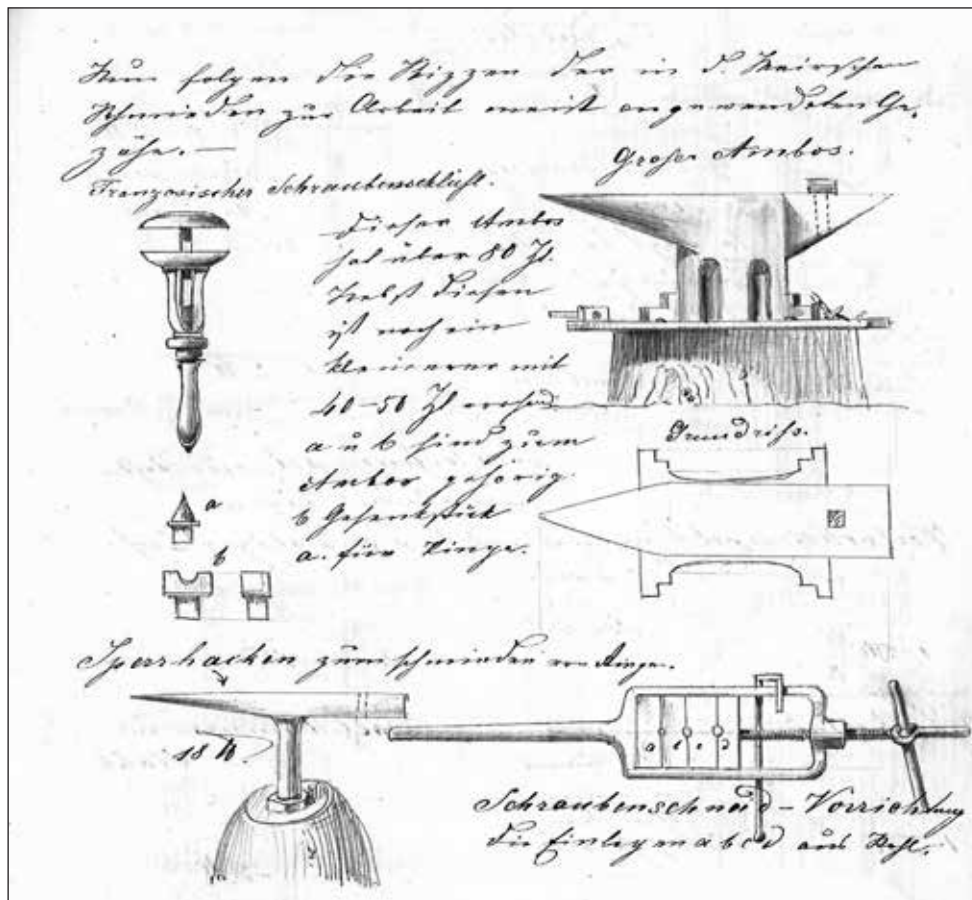 Nun folgen die Skizzen der in d. Kaiserschen
Schmieden zur Arbeit meist angewendeten Ge-
zähe. —
Großer Ambos.
Französischer Schraubenschlüßl.
Dieser Ambos
hat über 80 Zl.
Nebst diesen
ist noch ein
kleinerer mit
40-50 Zl
a u b sind zum
Ambos gehörig
b Gesenkstück
a. für Ringe.
Grundriss.
a
b
Sperrhacken zum schmieden von Ringe.
18 ℔.
a b c d
Schraubenschneid-Vorrichtung
die Einlagen a b c d aus Stahl.